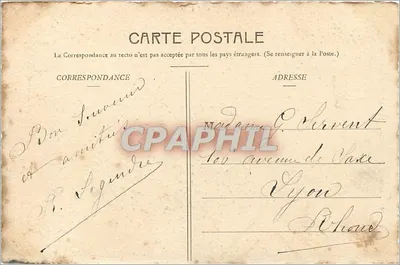 CARTE POSTALE
La Correspondance au recto n'est pas acceptée par tous les pays étrangers. (Se renseigner à la Poste.)
CORRESPONDANCE
Bon Souvenir
et amitiés
R. Legendre
ADRESSE
Madame C. Servent
101 avenue de Saxe
Lyon
Rhone
CPAPHIL